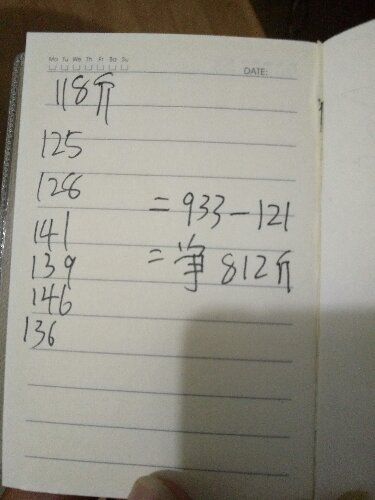 Mo Tu We Th Fr Sa Su
DATE:
118斤
125
128
= 933-121
141
= 净 812斤
139
146
136